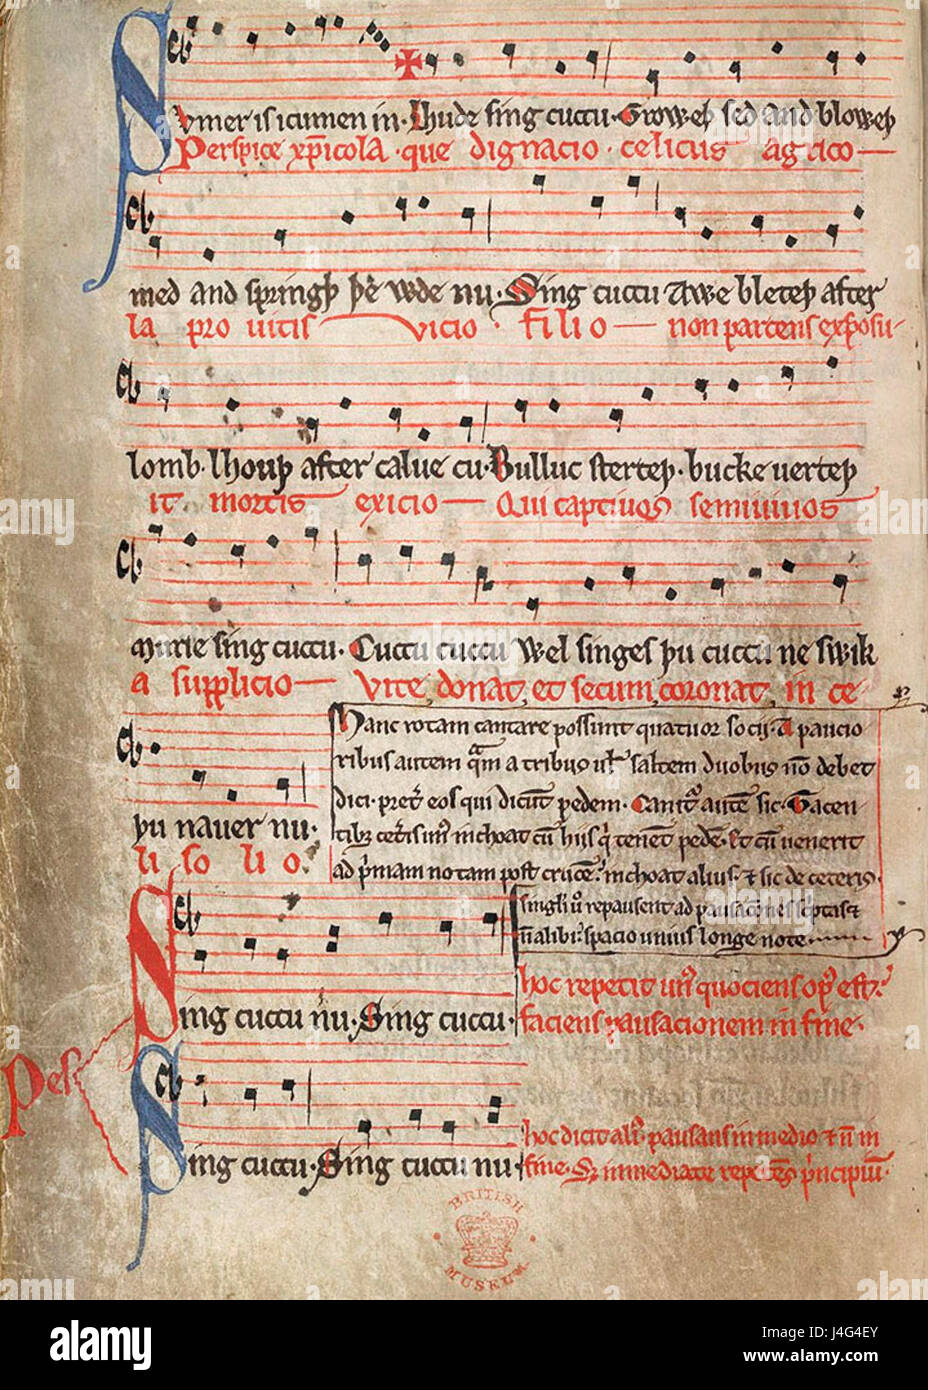 Svmer is icumen in · Lhude sing cuccu · Groweþ sed and bloweþ
Perspice xp̄icola · que dignacio · celicus agrico —
med and springþ þe wde nu · Sing cuccu Awe bleteþ after
la pro uitis — vicio · filio — non parcens exposu-
lomb · lhouþ after calue cu · Bulluc sterteþ · bucke uerteþ
it mortis exicio — Qui captiuos semiuiuos
murie sing cuccu · Cuccu cuccu Wel singes þu cuccu ne swik
a supplicio — Vite donat, et secum coronat, in ce-
þu nauer nu ·
li solio
Hanc rotam cantare possunt quatuor socij · A paucio
ribus autem quam a tribus uel saltem duobus non debet
dici · preter eos qui dicunt pedem · Canitur autem sic · Tacen
tibus ceteris unus inchoat cum hijs qui tenent pedem · Et cum uenerit
ad primam notam post crucem · inchoat alius · et sic de ceteris ·
singuli uero repausent ad pausaciones scriptas et
non alibi · spacio unius longe note
Sing cuccu nu · Sing cuccu ·
hoc repetit unus quociens opus est ·
faciens pausacionem in fine ·
Pes
Sing cuccu · Sing cuccu nu
hoc dicit alius · pausans in medio et non in
fine · Sed immediate repetens principium
BRITISH MUSEUM
alamy stock photo
alamy
Image ID: J4G4EY
www.alamy.com